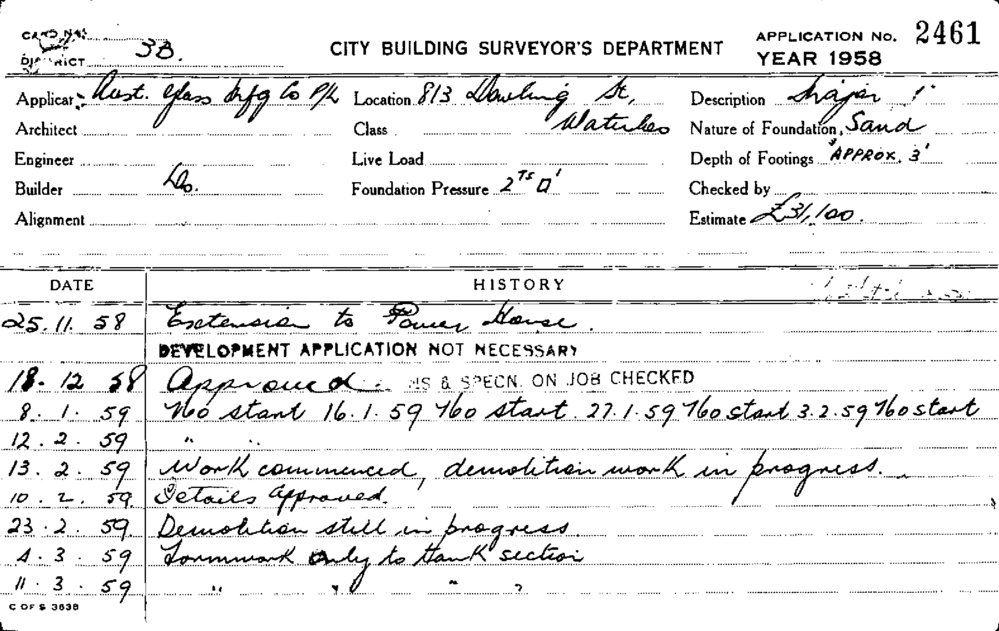 CARD No.
DISTRICT 3B.
CITY BUILDING SURVEYOR'S DEPARTMENT
APPLICATION No. 2461
YEAR 1958
Applicant Aust. Glass Mfg Co P/L Location 813 Dowling St, Description
Architect Class Waterloo Nature of Foundation Sand
Engineer Live Load Depth of Footings APPROX. 3'
Builder Do. Foundation Pressure 2 TS □' Checked by
Alignment Estimate £31,100.
DATE HISTORY
25.11.58 Extension to Power House.
DEVELOPMENT APPLICATION NOT NECESSARY
18.12 58 Approved NS & SPECN. ON JOB CHECKED
8.1.59 No start 16.1.59 No start. 27.1.59 No start 3.2.59 No start
12.2.59 " "
13.2.59 Work commenced, demolition work in progress.
10.2.59 Details approved.
23.2.59. Demolition still in progress.
4.3.59 Formwork only to tank section
11.3.59 " " " "
C OF S 3638